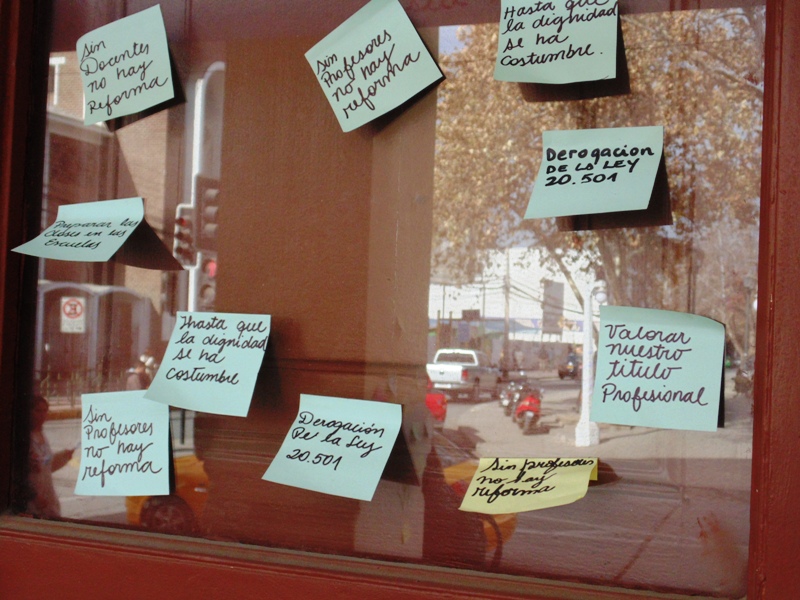 Sin
Docentes
no hay
Reforma
Sin
Profesores
no hay
reforma
Hasta que
la dignidad
se ha
costumbre.
Derogacion
DE LA LEY
20.501
Preparar las
clases en las
Escuelas
Hasta que
la dignidad
se ha
costumbre
Valorar
nuestro
titulo
Profesional
Sin
Profesores
no hay
reforma
Derogación
De la Ley
20.501
Sin profesores
no hay
reforma